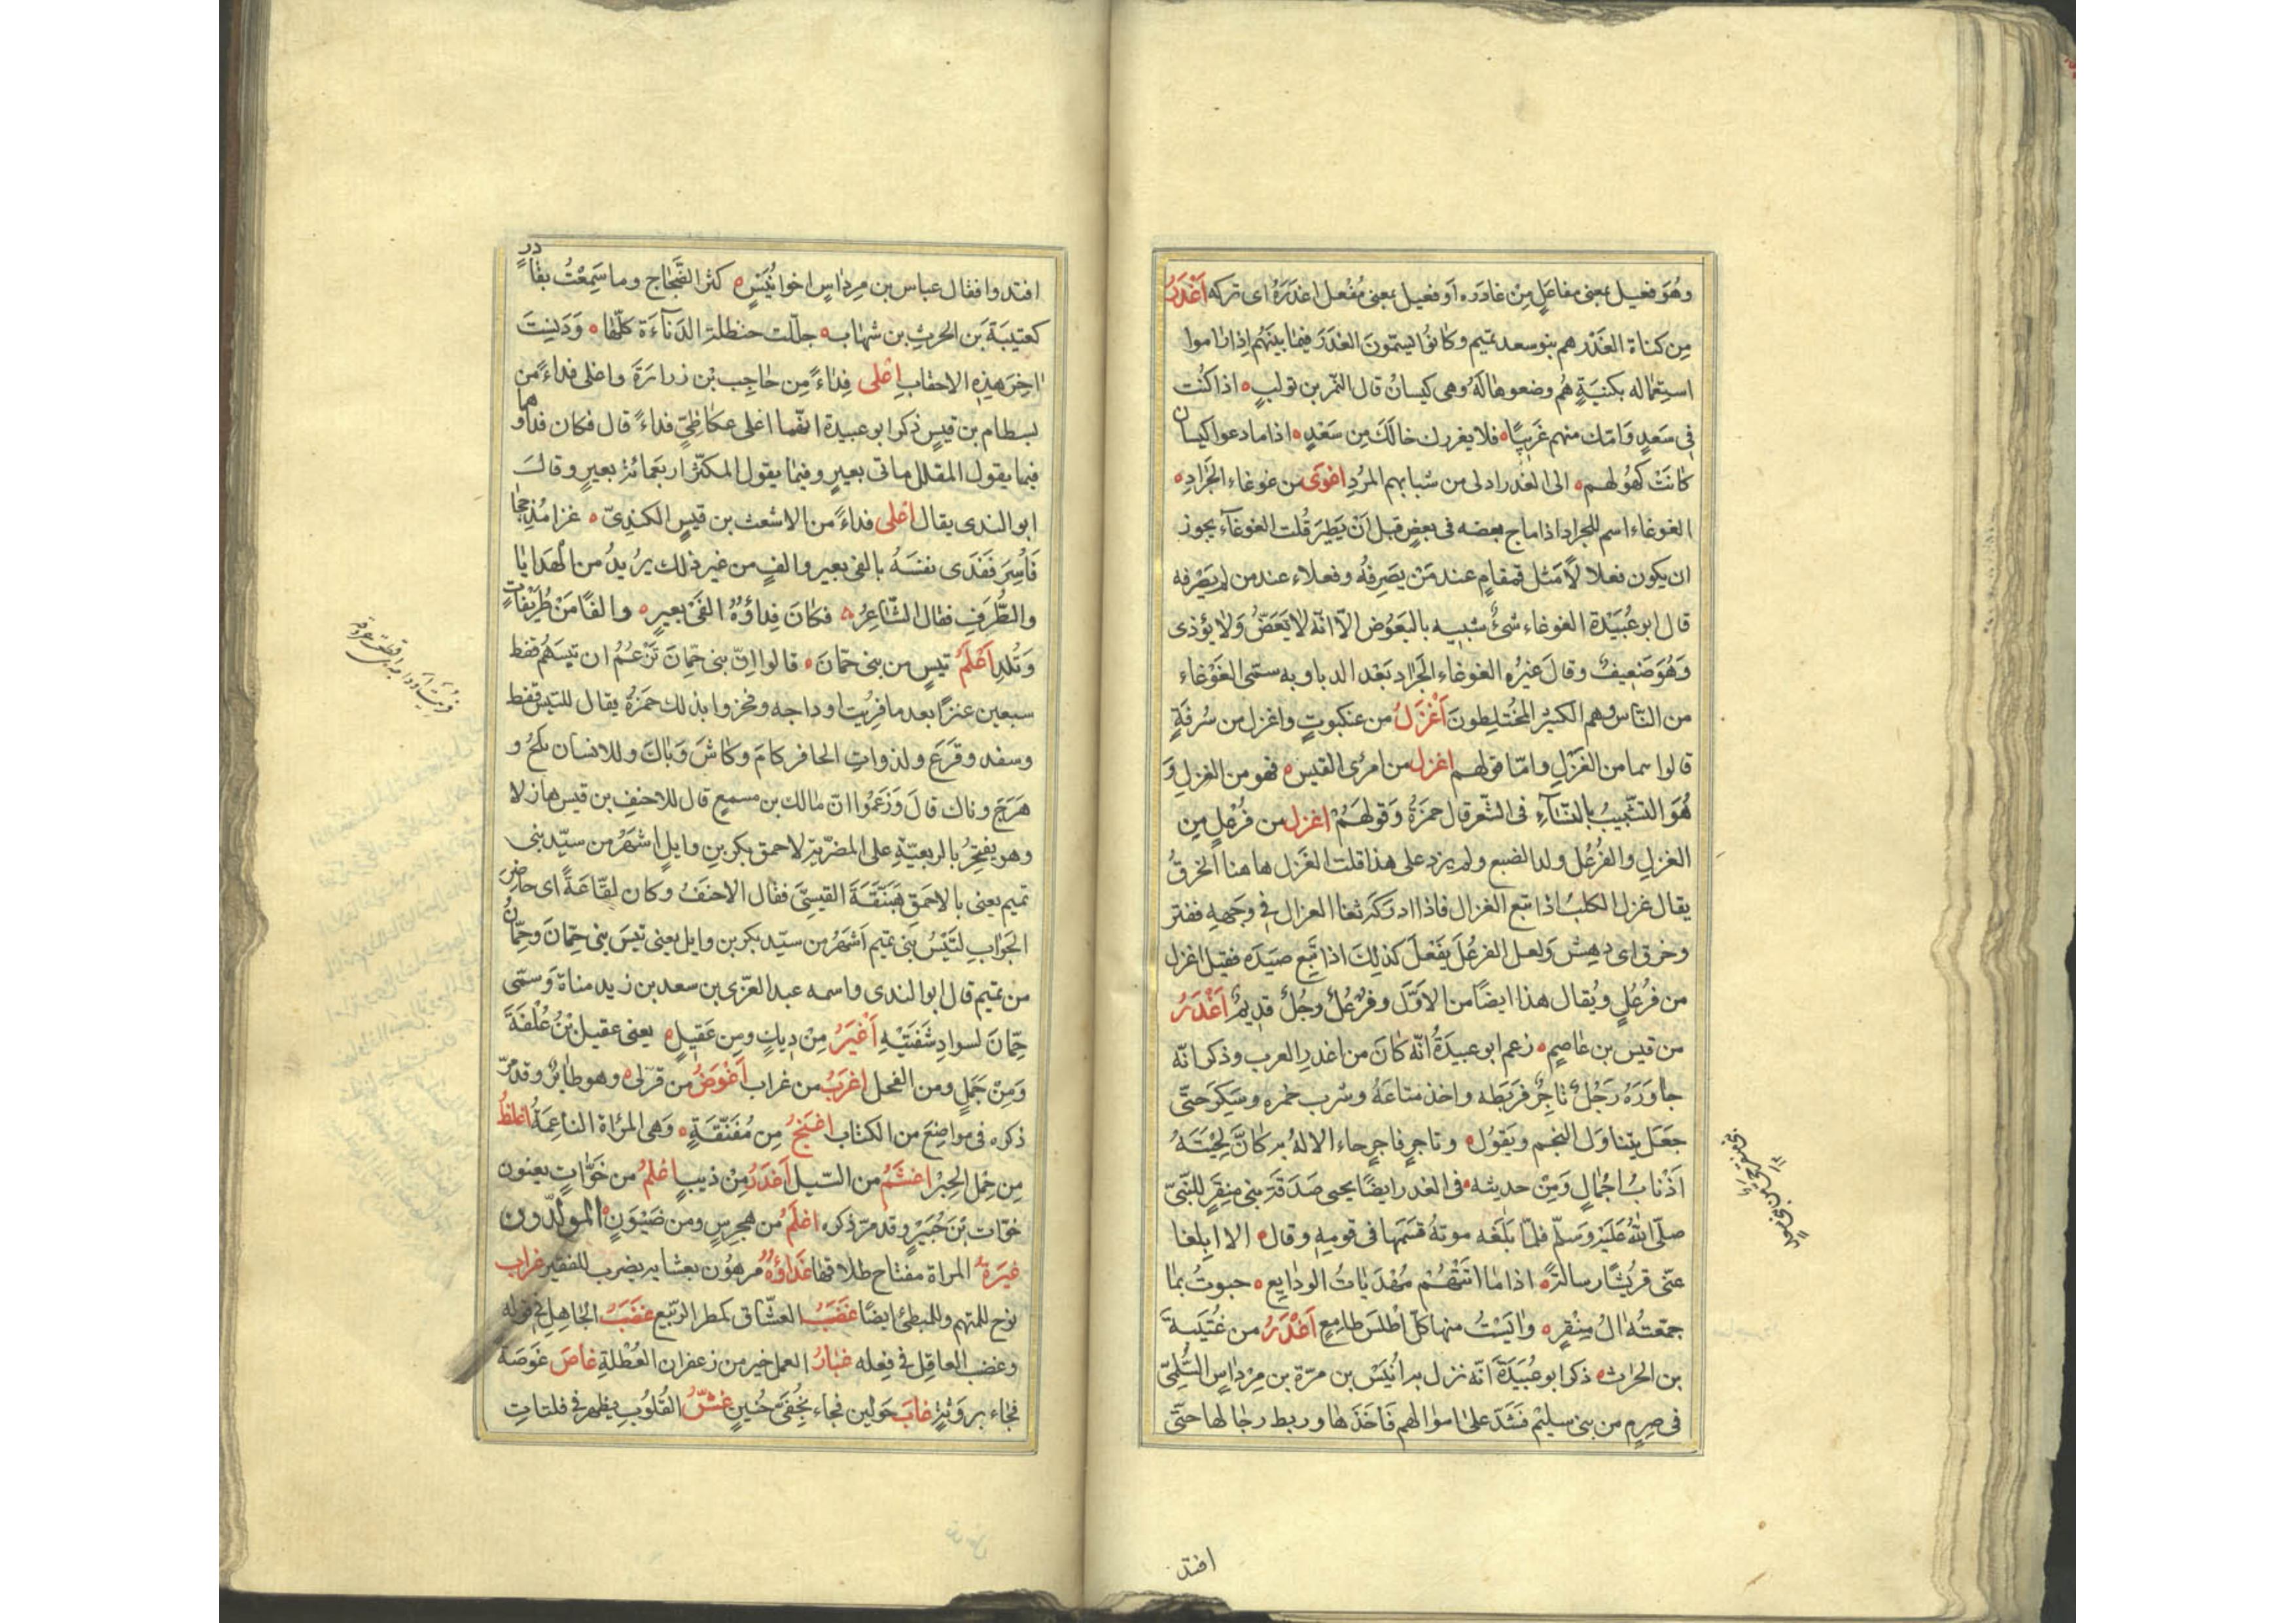 وهُوَ فعيل بمعنى مفاعَلٍ مِنْ غادَرَه اَو فعيل بمعنى مُفْعل اغدَرَهُ اى تركه اَغْدَرُ
مِن كناة الغَدْر هم بنو سعد تميم وكانوُا يسمّونَ الغدَرَ فيمَا بينَهُم اِذا رَاموا
استِعماله بكنيَةٍ هُم وضعوهَا لَهُ وهى كيسانُ قال النّمر بن تولبٍ ه اذا كُنت
فى سَعدٍ وَامّك منهم غَريبًا ه فلا يغررك خالُكَ مِن سَعْدٍ ه اذا ما دعوا كيسان
كانَتْ كهُولهم ه الى الغَدر ادلى من شبابهم المرُدِ اغوَى من غوغاء الجَرادِ ه
الغوغاء اسم للجراد اذا ماج بعضه فى بعضٍ قبل اَنْ يَطِيَر قُلت الغوغآء يجوز
ان يكون فعلا لًا مَثل قمقامٍ عند مَنْ يصَرِفُه وفعلاء عند من لم يَصْرفه
قال ابو عُبَيْدة الغوغاء شئٌ شبيه بالبَعُوض الّا انّه لا يَعَضُّ وَلا يؤذى
وَهُوَ ضَعِيفٌ وقالَ غيرُه الغوغاء الجَراد بَعْد الدبا وبه سمّى الغَوْغاء
من النّاس وهم الكثيرُ المُخْتَلِطونَ اَغْزَلُ من عنكبوتٍ واغزل من سُرفَةٍ
قالوا هما من الغَزْلِ وامّا قولهم اغزل من امرُئ القيسِ ه فهو من الغزلِ وَ
هُوَ التشّبيبُ بالنسَآءِ فى الشّعر قال حمَزَةُ وَقولهَمُ اغزل من فُرعُلٍ مِن
الغزلِ والفُرْعُل ولد الضبع ولم يزد على هذا قلت الغَزل ها هنا الخرقُ
يقال غزل الكلبُ اذا تبع الغزال فاذا ادرَكهَ ثغا الغزال فى وجههِ ففتر
وخرق اى دهِشَ وَلعل الفرعُلَ يفَعْلَ كذلِكَ اذا تَبِع صَيَدَه فقيل اغزل
من فرُعُلٍ ويُقال هذا ايضًا من الاوّلَ وفرْعُلٌ رجُلٌ قديمٌ اَغْدَرُ
من قيس بن عاصِمٍ ه زعم ابو عبيدَةُ انّه كانَ من اغدرِ العرب وذكر انّه
جاوَرَهُ رَجُلٌ تاجِرٌ فرَبَطه واخذ متاعَهُ وشرب خمْره وسَكَر حتّى
جَعَل يتناوَل النجم ويَقوُل ه وتاجرٍ فاجرٍ جاء الالهُ به كانَّ لحِيْتَهُ
اَذْنابُ اَجْمالٍ وَمِنْ حديثه ه فى الغدر ايضًا يحيى صَدَقَة بنى مِنقَرٍ للنّبىّ
صلّى اللهُ عَليَهْ وَسَلّم فلمّا بَلَغَه موتهُ قسّمَها فى قومِه وقال ه الا ابلغا
عنّى قريُشًا رسالةً ه اذا ما اتتهُمْ مُهْدَياتُ الودايع ه حبوتُ بما
جمّعتهُ الُ مِنْقرٍ ه وايَسْتُ منها كلّ اطْلسَ طامِعٍ اَغْدَرُ من عُتَيبةَ
بن الحارث ه ذكر ابو عُبَيَدةَ انّه نزل به اُنيَسْ بن مرّة بن مِرْداسٍ السُّلِمىّ
فى صِرمٍ من بنى سليمْ فشَدّ على امواَلهم فاخَذَها وربط رجالها حتّى
افتد
افتدوا فقال عباس بن مِرداسٍ اخو انُيَسٍ ه كثر الضّجَاج وما سَمِعْتُ بغادرٍ
كعتيبَة بَن الحرثِ بن شهاب ه جلّلت حنظلة الدَنآءَة كلّها ه وَدَنِيتَ
اخِرَ هذِه الاحقابِ اغلى فِداءً مِن حَاجِب بْن زرارَةَ واغلى فداءً من
بسطام بن قيسٍ ذكر ابو عبيدة انهّما اغلى عكاظِىٍّ فداءً قال فكان فداوهما
فيما يقول المقلل ماتى بعيرٍ وفيمَا يقول المكثر اربَعمائة بعيرٍ وقالَ
ابو الندى يقال اغلى فداءً من الاشعث بن قيسٍ الكندِىّ ه غزا مُذحجا
فَاُسِرَ فَفَدى نفسَهُ بالفى بعير والفٍ من غير ذلك يرُيدُ من الهَدايَا
والطُّرَفِ فقال الشاعِرُ ه فكانَ فِداؤهُ الفَىْ بعيرٍ ه والفًا مَنْ طُريْفاتٍ
وَتُلدِ اَغْلَمُ تيسٍ من بنى حمّانَ ه قالوا اِنّ بنى حِمّانَ تَزْعُمُ ان تيسَهُم قفط
سبعين عنزًا بعد ما فرِيُت اوداجه وفخروا بذلك حمَزةُ يقال للتّيس قفط
وسفد وقَرَعَ ولذواتِ الحافر كامَ وكاشَ وَباكَ وللانسان نكحُ و
هَرَجَ وناك قالَ وَزَعَموُا انّ مالك بن مسمعٍ قال للاحنفِ بن قيسٍ هازلا
وهو يفتخِرُ بالربعيّةِ على المضرّية لاحمق بكر بنِ وايلٍ اشهَرُ من سيّد بنى
تميم يعنى بالاحمقِ هَبَنّقَةَ القيسِىّ فقال الاحنَفُ وكان لقّاعَةً اى حاضِرَ
الجَوابِ لتَيْسُ بَنى تميم اَشهَرُ من سيّد بكر بن وايل يعنى تيسَ بنى حِمّانَ وحِمّانُ
من تميم قال ابو الندى واسمه عبد العزّى بن سعد بن زيد مناة وَسمّى
حِمّانَ لسوادِ شفَتَيْهِ اَغْيَرُ مِنْ دِيكٍ ومِن عَقيلٍ ه يعنى عقيل بْنُ عُلْفَةَ
وَمِنْ جَمَلٍ ومن الفحل اغرَبُ من غراب اَغْوَصُ من قرّلى ه وهو طائر وقد مرّ
ذكره فى مواضِعَ من الكتاب اغنَجُ مِن مُفَنّقَةٍ ه وَهى المرُاة الناعِمَةُ اغلظُ
مِن حِمْل الجِسْر اغشَمُ من السّيل اَغدَرُ مِنْ ذيبٍ اغلمُ من خَوّاتٍ يعنون
خوّات بْنَ جُبَيْرٍ وقد مرّ ذكره اغلَمُ من هجرسٍ ومن ضَيْوَنٍ ه المولّدون
غيرَةُ المراة مفتاح طلاقها غَداؤهُ مرهوُن بعشايه يضرب للفقير غراب
نوُح للمتهم وللمبطئ ايضًا غضَبُ العشّاق كمطر الربّيع غضَبُ الجاهِل فى قوله
وغضب العاقِل فى فِعله غبارُ العمل خير من زعفران العُطْلةِ غاصَ غَوصَة
فجاء بروَثةٍ غابَ حَولين فجاء بخُفىَّ حُنينٍ غشّ القُلوُبِ يظهر فى فلتاتِ